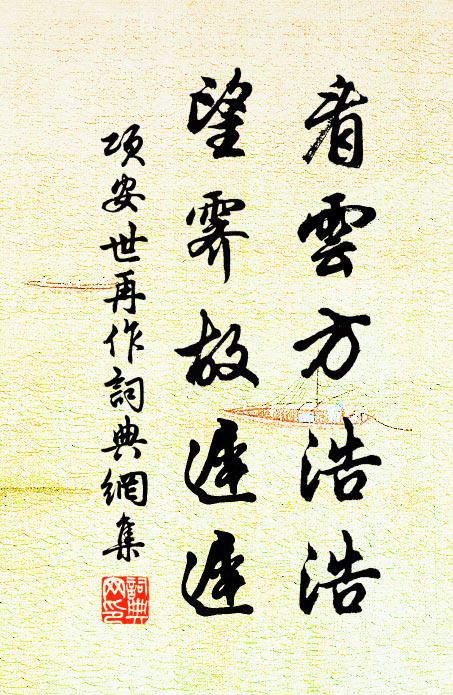 看雲方浩浩
望霽故遲遲
項安世再作詞典網集
詞典網印